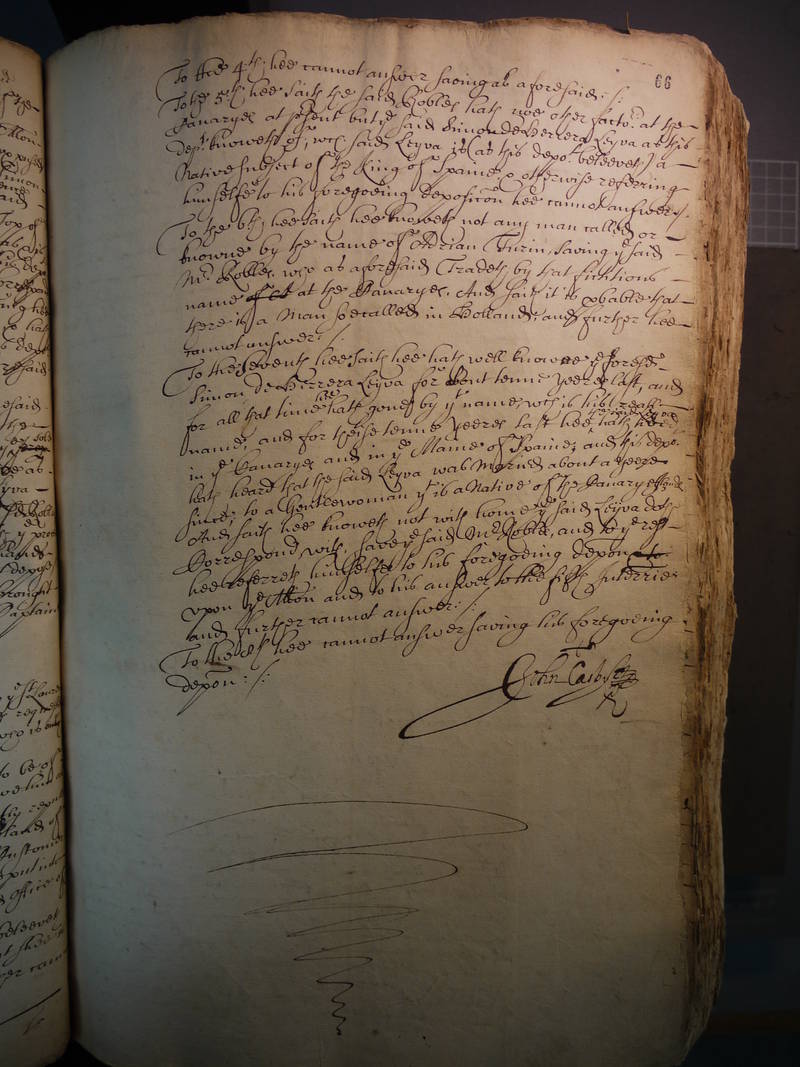 66
To the 4th hee cannot answer saving as aforesaid :/:
To the 5th hee saith the said Robles hath noe other facto:r at the
Canaryes at pr̃sent but ye said Simon de Herrera Leyva as this
depot knoweth of, wch said Leyva is (as this depot beleeveth) a
Native subject of the King of Spaine, & otherwise referring
himselfe to his foregoeing deposic̃on hee cannot answer /.
To the 6th hee saith hee knoweth not any man called or
knowne by the name of Adrian Turin, saving ye said
Mr Robles, who as aforesaid Tradeth by that fictitious
name at the Canaryes, And saith it is p̃bable that
there is a Man soe called in Holland; and further hee
cannot answer: /
To the seventh hee saith hee hath well knowne ye foresd
Simon de Herrera Leyva for about tenne yeeres last, and
for all that time hee hath gone by yt name, wch is his reall
name, and for theise tenne yeeres last hee hath lived
in ye Canaryes and in ye Maine of Spaine, and this depot
hath heard that the said Leyva was Married about a yeere
since, to a Gentlewoman yt is a Native of the Canaryes
And saith hee knoweth not with whome ye said Leyva doth
Correspond with, save ye said Mr Robles, and to ye rest
hee referreth himselfe to his foregoeing depon
upon ye Allon and to his answer to the fifth Interrie
and further cannot answer: /:
To the 8th hee cannot answer saving his foregoeing
depon : /:
John Casby